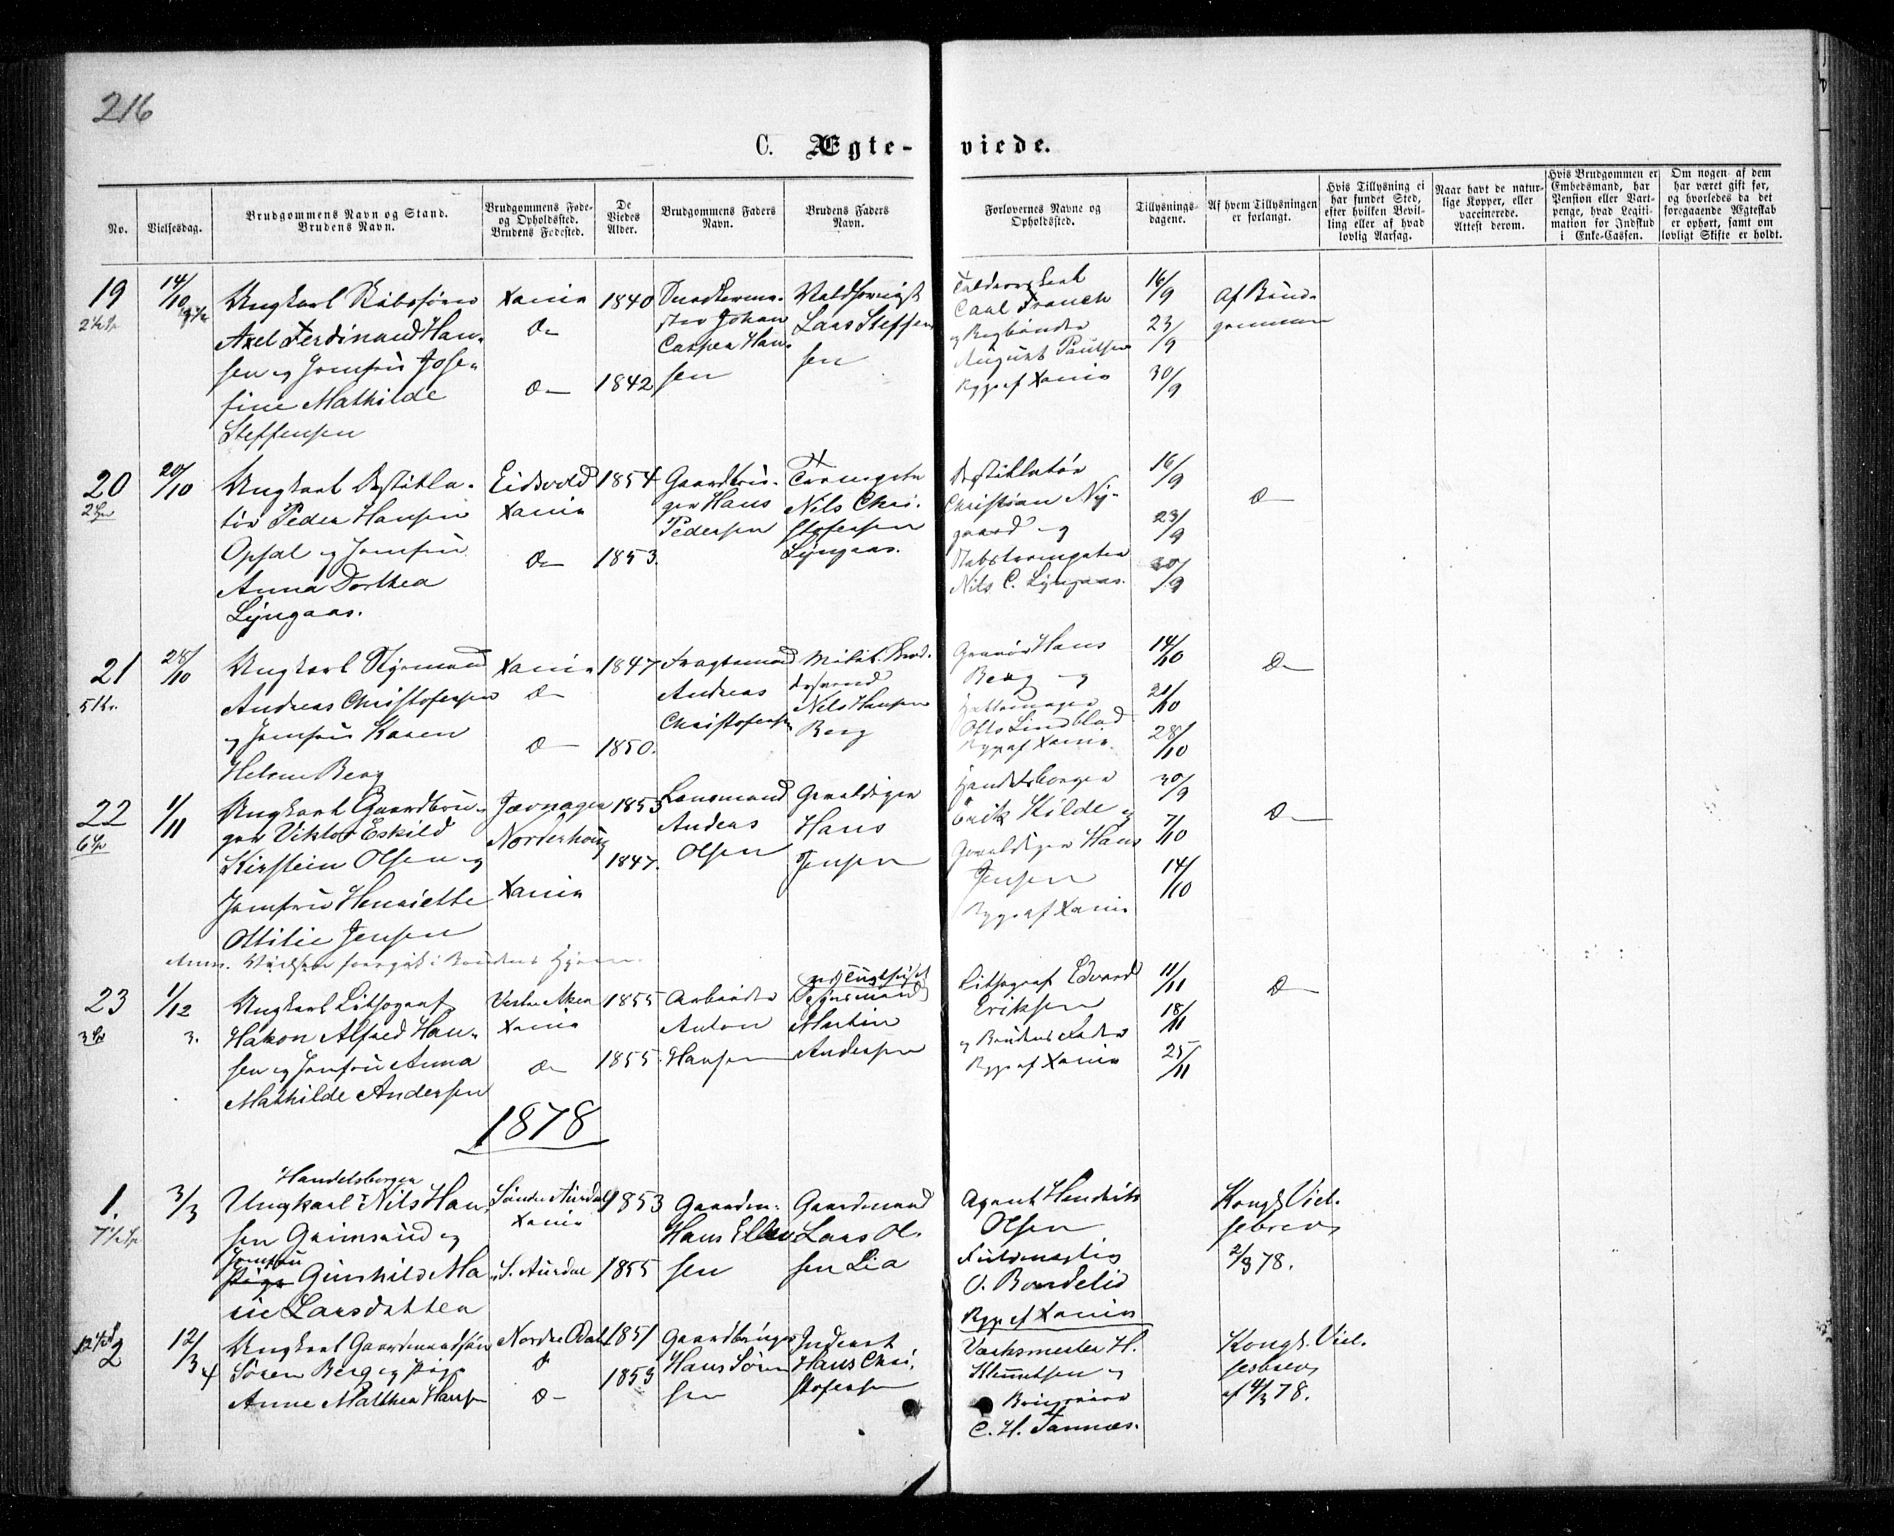 216
C. Ægte-viede.
No.
Vielsesdag.
Brudgommens Navn og Stand.
Brudens Navn.
Brudgommens Føde-
og Opholdssted.
Brudens Fødested.
De
Viedes
Alder.
Brudgommens Faders
Navn.
Brudens Faders
Navn.
Forlovernes Navne og
Opholdssted.
Tillysnings-
dagene.
Af hvem Tillysningen
er forlangt.
Hvis Tillysning ei
har fundet Sted,
efter hvilken Bevil-
ling eller af hvad
lovlig Aarsag.
Naar havt de natur-
lige Kopper, eller
vaccinerede.
Attest derom.
Hvis Brudgommen er
Embedsmand, har
Pension eller Vart-
penge, hvad Legiti-
mation for Indskud
i Enke-Cassen.
Om nogen af dem
har været gift før,
og hvorledes da det
foregaaende Ægteskab
er ophørt, samt om
lovligt Skifte er holdt.
19
14/10
Ungkarl
Axel Ferdinand Han-
sen og Jomfru Jose-
fine Mathilde
Steffensen
Xania
D—
D—
1840
1842
Johan
Casper Han-
sen
Lars Steffen-
sen
Carl Franck
og
August Paulsen
Bgge af Xania
16/9
23/9
30/9
Af Brud-
gommen
20
20/10
Ungkarl Destilla-
tør Peder Hansen
Opsal og Jomfru
Anna Dorthea
Lyngaas.
Eidsvold
Xania
D—
1854
1853.
Gaardbru-
ger Hans
Pedersen
Nils Chri-
stofersen
Lyngaas.
Destillatør
Christian Ny-
gaard og
Nils C. Lyngaas.
16/9
23/9
30/9
D—
21
28/10
5 Kr.
Ungkarl Styrmand
Andreas Christofersen
og Jomfru Karen
Helene Berg
Xania
D—
D—
1847
1850.
Fragtemand
Andreas
Christofersen
Nils Hansen
Berg
Gravør Hans
Berg og
Hattemager
Otto Lindblad
Bgge af Xania.
14/10
21/10
28/10
D—
22
1/11
Ungkarl Gaardbru-
ger Viktor Eskild
Kirstein Olsen og
Jomfru Henriette
Ottilie Jensen
Jævnager
Norderhoug
Xania
1853
1847.
Lensmand
Anders
Olsen
Gevaldiger
Hans
Jensen
Handelsborger
Erik Kilde og
Gevaldiger Hans
Jensen
Bgge af Xania
30/9
7/10
14/10
D—
Anm. Vielsen foregik i Brudens Hjem.
23
1/12
3.
Ungkarl Lithograf
Hakon Alfred Han-
sen og Jomfru Anna
Mathilde Andersen
Vestre Aker
Xania
D—
1855
1855.
Arbeider
Anton
Hansen
Martin
Andersen
Lithograf Edvard
Eriksen
og Brudens Fader
Bgge af Xania
11/11
18/11
25/11
D—
1878
1.
3/3
Handelsborger
Ungkarl Nils Han-
sen Grimsrud og
Jomfru
Pige Gunhild Ma-
rie Larsdatter
Søndre Aurdal
Xania
S. Aurdal
1853
1855
Gaardm.
Hans Ellev-
sen
Gaardmand
Lars Ol-
sen Lia
Agent Hendrik
Olsen
Fuldmægtig
O. Bondelid
Bgge af Xania
Kongl. Viel-
sebrev
2/3 78.
2
12/3
4
Ungkarl Gaardmandssøn
Søren Berg og Pige
Anne Mathea Hansen
Nordre Odal
D
D—
1851
1853
Gaardbruger
Hans Søren-
sen
Inderst
Hans Chri-
stofersen
Værksmester H.
Klemetsen og
C. H. Tannæs.
Kongl. Viel-
sesbrev
af 4/3 78.